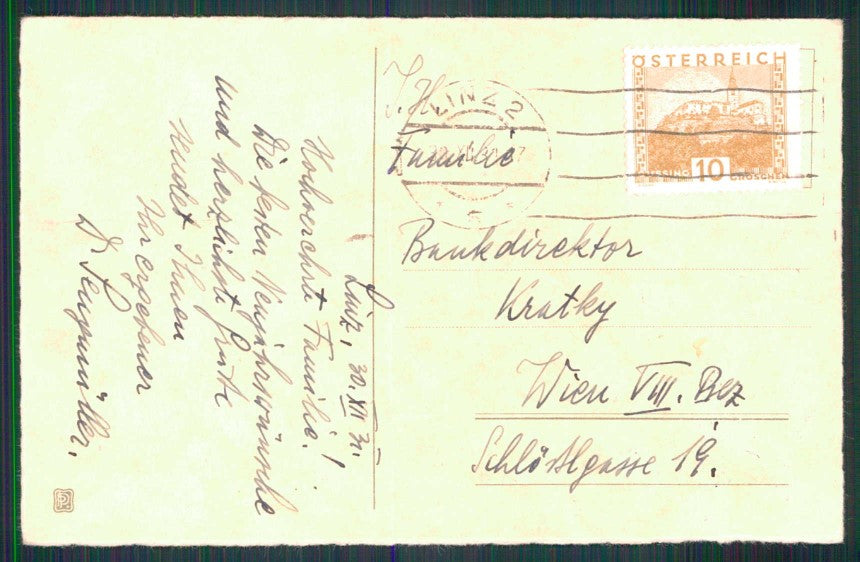 Linz, 30. XII 31.
Hochverehrte Familie!
Die besten Neujahrswünsche
und herzlichste Grüße
sendet Ihnen
Ihr ergebener
ÖSTERREICH
GÜSSING 10 GROSCHEN
LINZ 2
Familie
Bankdirektor
Kratky
Wien VIII. Bez
Schlösslgasse 19.